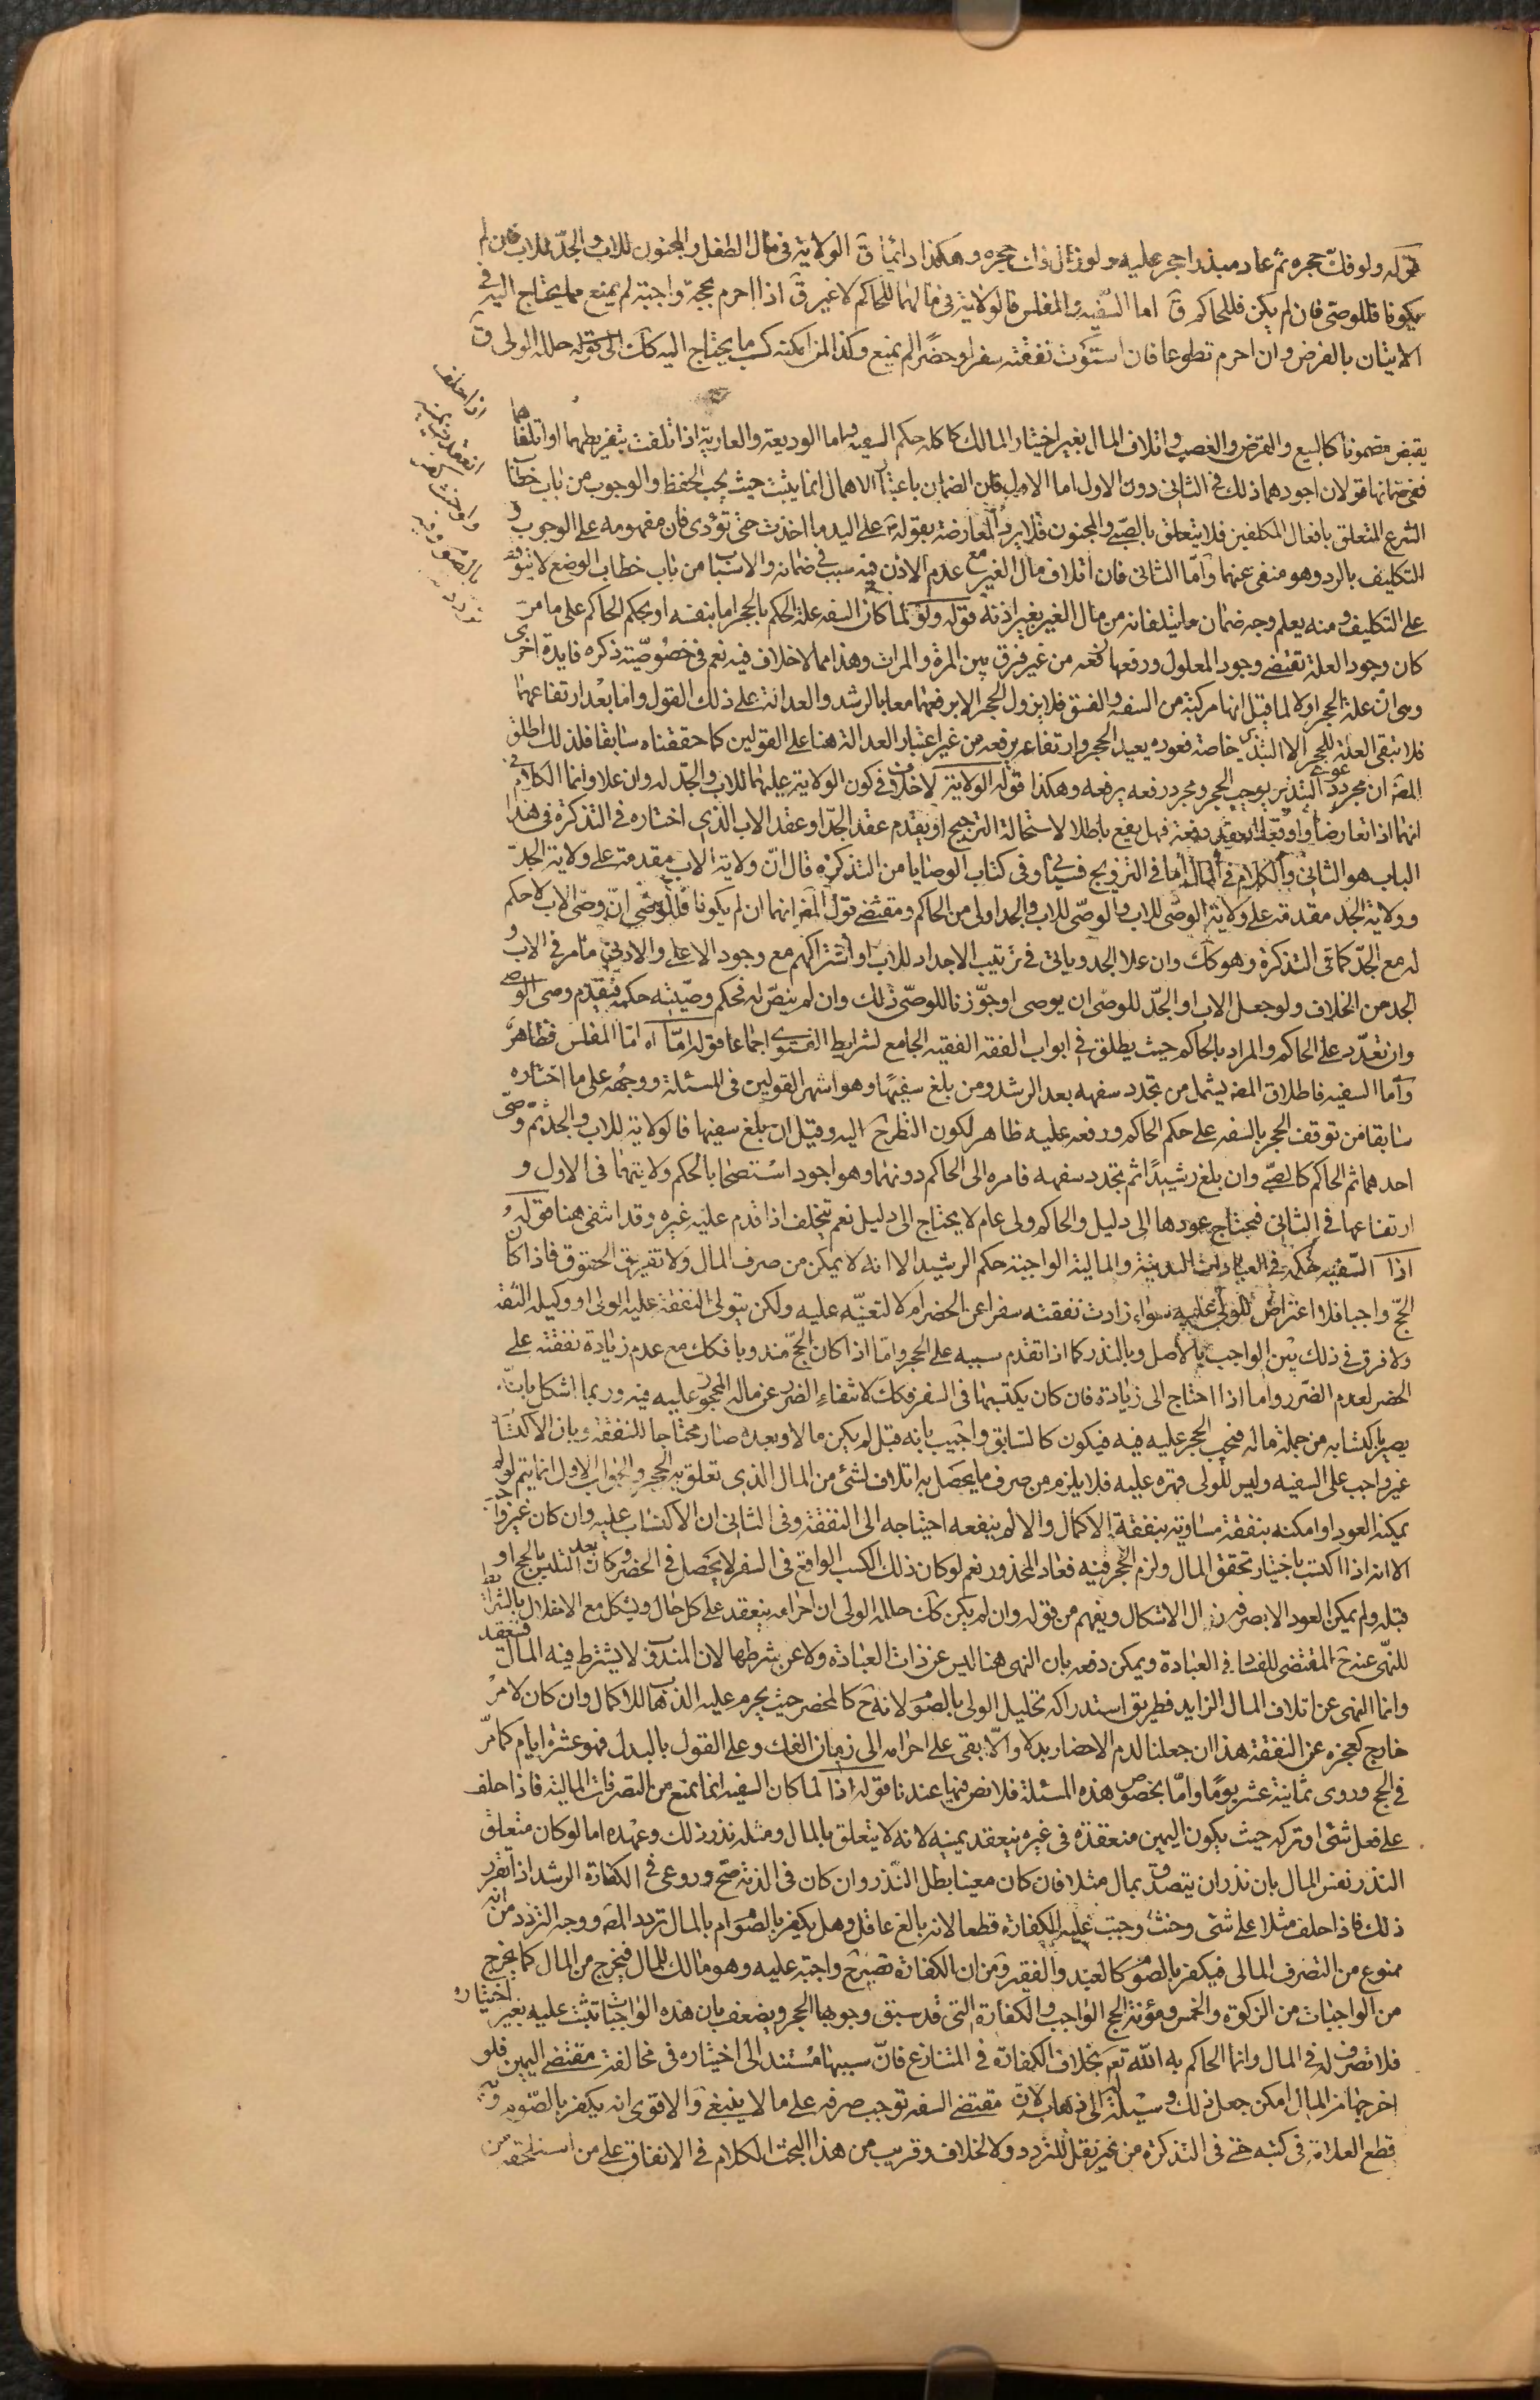 قوله ولو فك حجره ثم عاد مبذرا حجر عليه ولو زال فك حجره وهكذا دائما ق الولاية فى مال الطفل والمجنون للاب والجد للاب فان لم
يكونا فللوصى فان لم يكن فللحاكم ق اما السفيه والمفلس فالولاية فى مالهما للحاكم لا غير ق اذا احرم بحجة واجبة لم يمنع مما يحتاج اليه فى
الاتيان بالفرض وان احرم تطوعا فان استوت نفقته سفرا وحضرا لم يمنع وكذا ان امكنه كسب ما يحتاج اليه حلله الولى ق
يقبض مضمونا كالبيع والقرض والغصب واتلاف المال بغير اختيار المالك كما كله حكم السفيه واما الوديعة والعارية اذا تلفت بتفريطهما او اتلفاهما
ففى ضمانها قولان اجودهما ذلك فى الثانى دون الاول اما الاول فلان الضمان باعتبار الاهمال انما يثبت حيث يجب الحفظ والوجوب من باب خطاب
الشرع المتعلق بافعال المكلفين فلا يتعلق بالصبى والمجنون فلا يرد المعارضة بقوله على اليد ما اخذت حتى تؤدى فان مفهومه على الوجوب و
التكليف بالرد وهو منفى عنهما واما الثانى فان اتلاف مال الغير مع عدم الاذن فيه سبب فى ضمانه والاسباب من باب خطاب الوضع لا يتوقف
على التكليف ومنه يعلم وجه ضمان ما يتلفانه من مال الغير بغير اذنه قوله ولو لما كان السفه علة الحكم بالحجر اما بنفسه او بحكم الحاكم على ما مر
كان وجود العلة تقتضى وجود المعلول ورفعها رفعه من غير فرق بين المرة والمرات وهذا مما لا خلاف فيه نعم فى خصوصية ذكره فايدة اخرى
وهى ان علة الحجر اولا لما قيل انها مركبة من السفه والفسق فلا يزول الحجر الا برفعهما معا بالرشد والعدالة على ذلك القول واما بعد ارتفاعهما
فلا تبقى العلة للحجر الا التبذير خاصة فعوده يعيد الحجر وارتفاعه يرفعه من غير اعتبار العدالة هنا على القولين كما حققناه سابقا فلذلك اطلق
المص ان مجرد عود التبذير يوجب الحجر ومجرد رفعه يرفعه وهكذا قوله الولاية لا خلاف فى كون الولاية عليهما للاب والجد له وان علا وانما الكلام فى
انهما اذا تعارضا واوقعا العقد دفعة فهل يقع باطلا لاستحالة الترجيح او يقدم عقد الجد او عقد الاب الذى اختاره فى التذكرة فى هذا
الباب هو الثانى والكلام فى المال اما فى التزويج فسيأتى وفى كتاب الوصايا من التذكرة قال ان ولاية الاب مقدمة على ولاية الجد
وولاية الجد مقدمة على ولاية الوصى للاب والوصى للاب والجد اولى من الحاكم ومقتضى قول المص انهما ان لم يكونا فللوصى ان وصى الاب لا حكم
له مع الجد كما فى التذكرة وهو كك وان علا الجد وياتى فى ترتيب الاجداد للاب او اشتراكهم مع وجود الاعلى والادنى ما مر فى الاب و
الجد من الخلاف ولو جعل الاب او الجد للوصى ان يوصى او جوزنا للوصى ذلك وان لم ينص له فحكم وصيته حكمه فيقدم وصى الوصى
وان تعدد على الحاكم والمراد بالحاكم حيث يطلق فى ابواب الفقه الفقيه الجامع لشرايط الفتوى اجماعا قوله اما اه اما المفلس فظاهر
واما السفيه فاطلاق المص يشمل من تجدد سفهه بعد الرشد ومن بلغ سفيها وهو اشهر القولين فى المسئلة ووجهه على ما اختاره
سابقا من توقف الحجر بالسفه على حكم الحاكم ورفعه عليه ظاهر لكون النظر ح اليه وقيل ان بلغ سفيها فالولاية للاب والجد ثم وصى
احدهما ثم الحاكم كالصبى وان بلغ رشيدا ثم تجدد سفهه فامره الى الحاكم دونهما وهو اجود استصحابا لحكم ولايتهما فى الاول و
ارتفاعها فى الثانى فيحتاج عودها الى دليل والحاكم ولى عام لا يحتاج الى دليل نعم تتخلف اذا قدم عليه غيره وقد انتفى هنا قوله
اذا السفيه حكمه فى العبادات البدنية والمالية الواجبة حكم الرشيد الا انه لا يمكن من صرف المال ولا تفريق الحقوق فاذا كان
الحج واجبا فلا اعتراض للولى عليه سواء زادت نفقته سفرا عن الحضر ام لا لتعينه عليه ولكن يتولى النفقة عليه الولى او وكيله الثقة
ولا فرق فى ذلك بين الواجب بالاصل وبالنذر كما اذا تقدم سببه على الحجر واما اذا كان الحج مندوبا فكك مع عدم زيادة نفقته على
الحضر لعدم الضرر واما اذا احتاج الى زيادة فان كان يكتسبها فى السفر فكك لانتفاء الضرر عن ماله المحجور عليه فيه وربما اشكل بانه
يصير باكتسابه من جملة ماله فيجب الحجر عليه فيه فيكون كالسابق واجيب بانه قبله لم يكن مالا وبعده صار محتاجا للنفقة وبان الاكتساب
غير واجب على السفيه وليس للولى قهره عليه فلا يلزم من صرف ما يحصل به اتلاف لشئ من المال الذى تعلق به الحجر والجواب الاول انما يتم لو لم
يمكنه العود او امكنه بنفقة مساوية بنفقة الاكمال والا لم ينفعه احتياجه الى النفقة وفى الثانى ان الاكتساب عليه وان كان غير واجب
الا انه اذا اكتسب باختياره تحقق المال ولزم الحجر فيه فعاد المحذور نعم لو كان ذلك الكسب الواقع فى السفر لا يحصل فى الحضر وكان بعد التلبس بالحج او
قبله ولم يمكن العود الا بصرفه زال الاشكال ويفهم من قوله وان لم يكن كك حلله الولى ان احرامه ينعقد على كل حال ويشكل مع الاخلال بالشرايط
للنهى عنه ح المقتضى للفساد فى العبادة ويمكن دفعه بان النهى هنا ليس عن ذات العبادة ولا عن شرطها لان المندوب لا يشترط فيه المال فينعقد
وانما النهى عن اتلاف المال الزايد فطريق استدراكه تحليل الولى بالصوم لانه ح كالمحصر حيث يحرم عليه الذهاب للاكمال وان كان لامر
خارج كعجزه عن النفقة هذا ان جعلنا لدم الاحصار بدلا والا بقى على احرامه الى زمان الفك وعلى القول بالبدل فهو عشرة ايام كما مر
فى الحج وروى ثمانية عشر يوما واما بخصوص هذه المسئلة فلا نص فيها عندنا قوله اذا لما كان السفيه انما يمنع من التصرفات المالية فاذا حلف
على فعل شئ او تركه حيث يكون اليمين منعقدة فى غيره ينعقد يمينه لانه لا يتعلق بالمال ومثله نذر ذلك وعهده اما لو كان متعلق
النذر نفس المال بان نذر ان يتصدق بمال مثلا فان كان معينا بطل النذر وان كان فى الذمة صح وروعى فى الكفارة الرشد اذا تقرر
ذلك فاذا حلف مثلا على شئ وحنث وجبت عليه الكفارة قطعا لانه بالغ عاقل وهل يكفر بالصوم ام بالمال تردد المص ووجه التردد من انه
ممنوع من التصرف المالى فيكفر بالصوم كالعبد والفقير ومن ان الكفارة تصير ح واجبة عليه وهو مالك للمال فيخرج من المال كما يخرج
من الواجبات من الزكوة والخمس ومؤنة الحج الواجب والكفارة التى قد سبق وجوبها الحجر ويضعف بان هذه الواجبات تثبت عليه بغير اختياره
فلا تصرف له فى المال وانما الحاكم به الله تع بخلاف الكفارة فى المتنازع فان سببها مستند الى اختياره فى مخالفة مقتضى اليمين فلو
اخرجها من المال امكن جعل ذلك وسيلة الى ذهابه لان مقتضى السفه توجب صرفه على ما لا ينبغى والاقوى انه يكفر بالصوم وبه
قطع العلامة فى كتبه حتى فى التذكرة من غير نقل للتردد ولا لخلاف وقريب من هذا البحث الكلام فى الانفاق على من استلحقه من
اذا حلف
انعقدت يمينه
ولو حنث كفر
بالصوم وفيه
تردد